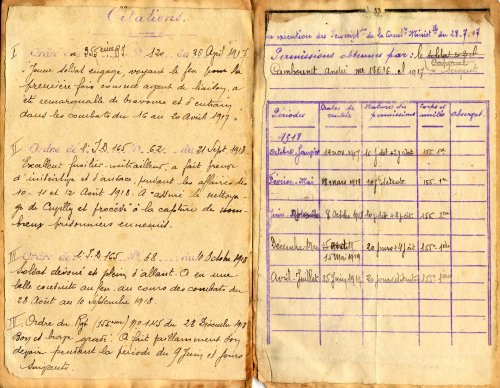 Citations.
I Ordre du 355ème RI N° 120 du 26 Avril 1917
"Jeune soldat engagé, voyant le feu pour la
première fois comme agent de liaison, a
été remarquable de bravoure et d'entrain
dans les combats du 16 au 20 Avril 1917".
II Ordre de l'I.D 165 N° 62 du 21 Sept 1918
Excellent fusilier-mitrailleur, a fait preuve
d'initiative et d'audace pendant les affaires des
10. 11 et 12 Août 1918. A assuré le nettoya-
ge de Cuvilly et procédé à la capture de nom-
breux prisonniers ennemis.
III Ordre de l'I.D 165 N° 68 du 10 Octobre 1918
Soldat dévoué et plein d'allant. A eu une
belle conduite au feu au cours des combats du
28 Août au 10 Septembre 1918.
IV Ordre du Rgt (155ème) N° 1145 du 28 Décembre 1918
Bon et brave gradé. A fait vaillamment son
devoir pendant la période du 9 Juin et jours
suivants.
33
en exécution des Prescript ons de la Circul re Ministér lle du 28.7.17
Permissions obtenues par: le Soldat
Caporal
Cambounet André mle 18636 cl 1917.
Périodes Dates de rentrée Nature des permissions Corps et unités Observat.
1918
Octobre-Janvier 10 j détt 155. 1re
Février-Mai 18 mars 1918 10 j détente 155. 1re
Juin 8 Octob 1918 155 1re
Décembre-Mars 15 Mai 1919 20 jours + 4 j détt 155e 1ère
Avril-Juillet 25 Juin 1919 20 jours détente 155e 1ère